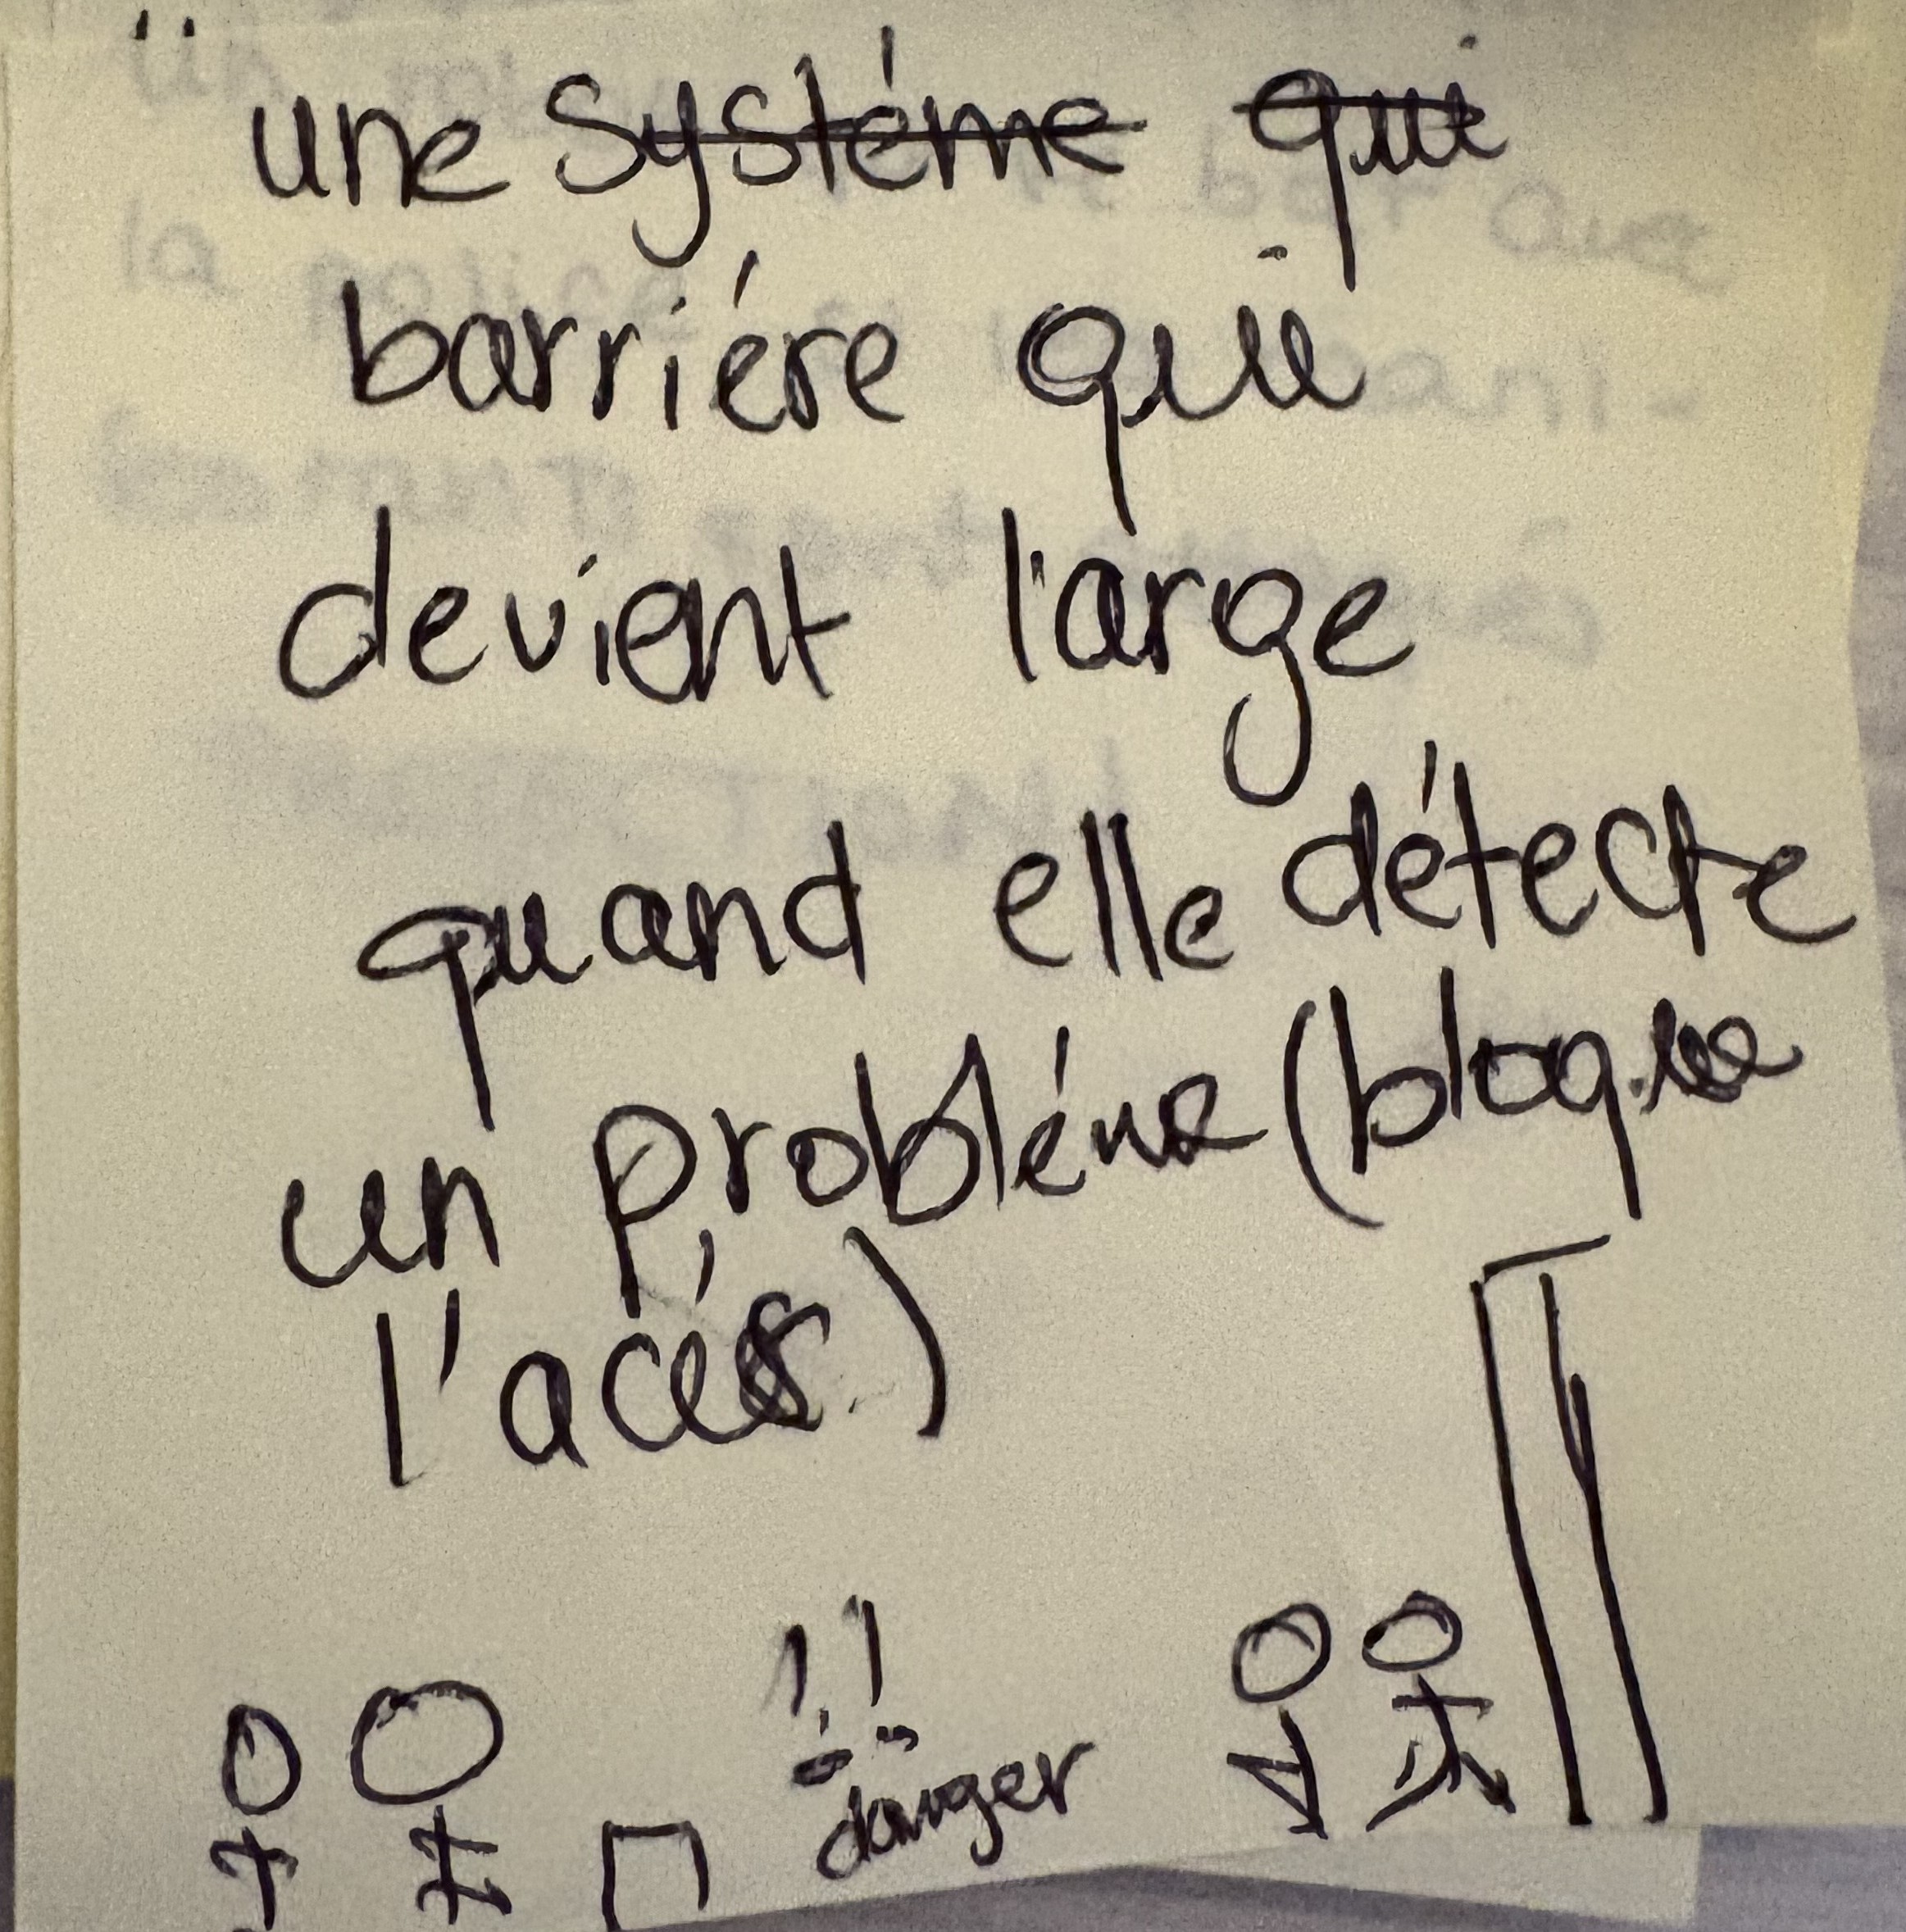 une système qui
barriére qui
devient large
quand elle détecte
un probléme (bloque
l'acés)
!!
danger